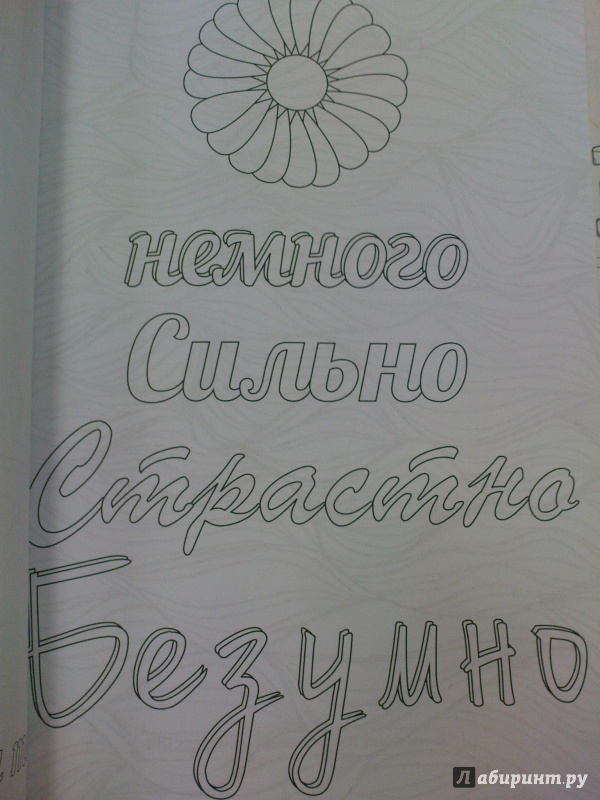 немного
Сильно
Страстно
Безумно
Лабиринт.ру